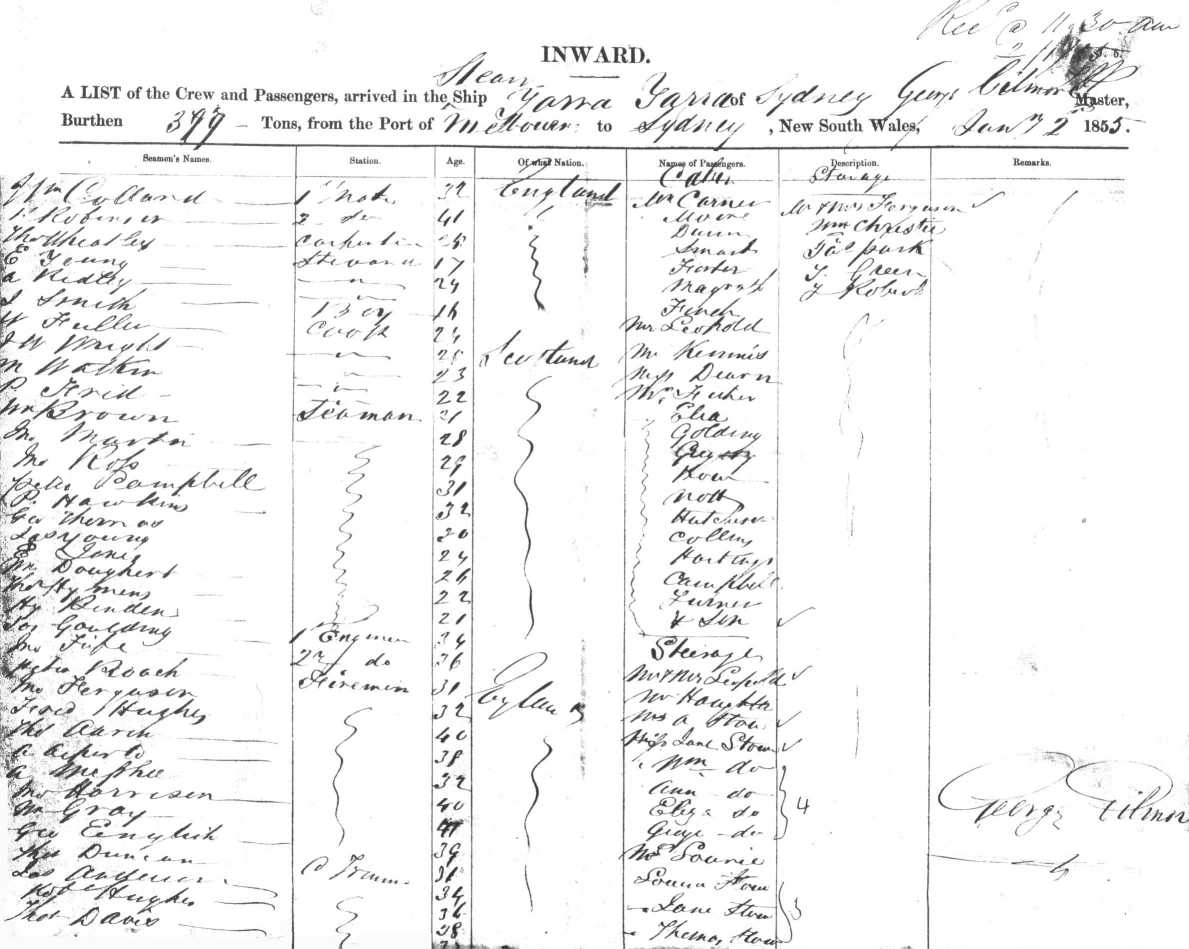 Recd @ 11.30 am
INWARD.
Steam
A LIST of the Crew and Passengers, arrived in the Ship Yarra Yarra of Sydney George Gilmore Master,
Burthen 399 Tons, from the Port of Melbourne to Sydney, New South Wales, Jany 2 1855.
Seamen's Names. Station. Age. Of what Nation. Names of Passengers. Description. Remarks.
Cabin Steerage
Wm Colland 1st Mate 32 England Mr Carner Mr & Mrs Ferguson
Robinson 2 do 41 Moore Wm Christie
Thos Wheatley Carpenter 28 Dunn Jas Park
E Young Steward 17 Smart J. Green
A Ridley 24 Foster J Roberts
J Smith Magrath
Boy 16 Finch
W Fuller Cook 24 Mr Leopold
J W Wright 28 Scotland Mr Kennis
M Watkin 23 Miss Dearn
P. Frid 22 Mr Fisher
Wm Brown Seaman 21 Elia
Jno Martin 28 Golding
Jno Ross 29
Peter Campbell 31
P. Hawkins 32 Nott
Geo Thomas 30 Hutchison
Jas Young 24 Collins
E Jones 26 Hastings
Wm Doughert 22 Campbell
Thos Hymens 21 Turner
Hy Linden & Son
Jos Goulding 1 Engineer 34
Jno Fife 2nd do 36 Steerage
Peter Roach Firemen 31 England Mr & Mrs Leopold
Jno Ferguson 32 Mr Houghton
Fred Hughes 40 Mrs A Stow
Thos Aaron 38 Miss Jane Stow
A Alperto 32 Wm do
A McPhee 40 Ann do 4
Jno Harrison 41 Eliza do
Wm Gray 39 George do
Geo English 31 Mrs Lourie
Thos Duncan 34 Louisa Stow
Jas Anderson C Trimmer 36 Jane Stow 3
Robt Hughes 38 Thomas Stow
Thos Davis
George Gilmore